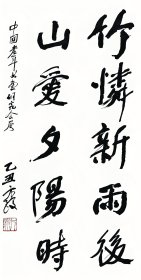 竹憐新雨後
山愛夕陽時
中國老年書畫研究會屬
乙丑